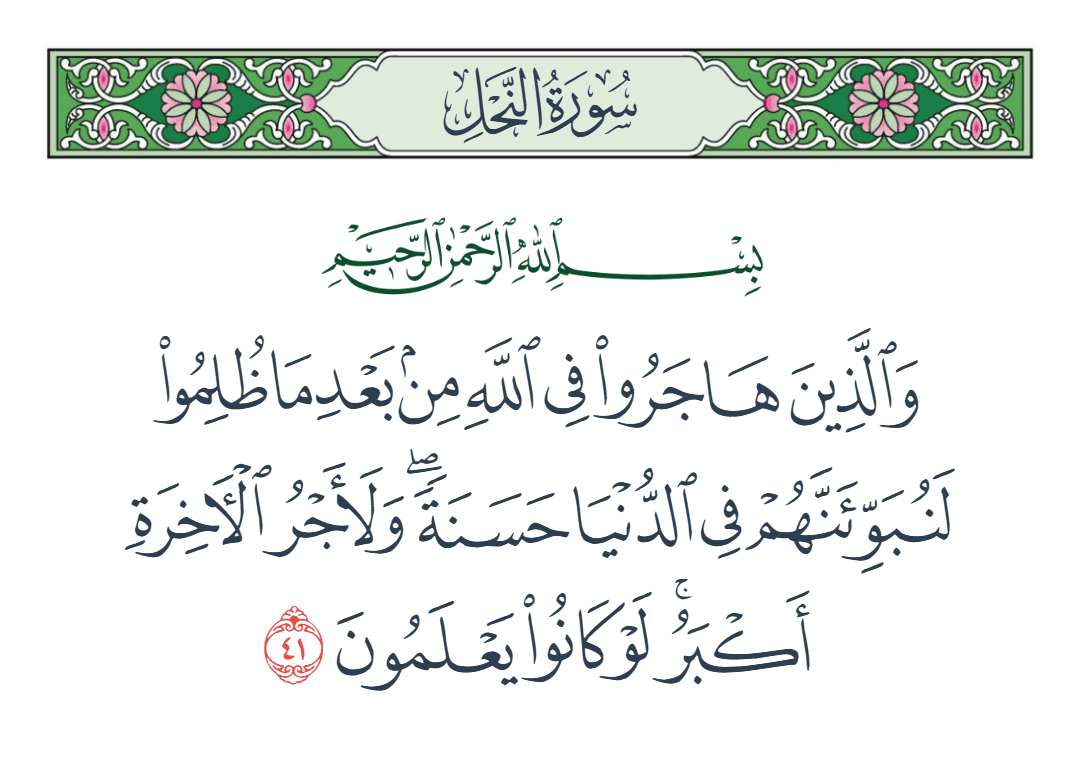 سُورَةُ النَّحْلِ
بِسْمِ ٱللَّهِ ٱلرَّحْمَٰنِ ٱلرَّحِيمِ
وَٱلَّذِينَ هَاجَرُوا۟ فِى ٱللَّهِ مِنۢ بَعْدِ مَا ظُلِمُوا۟
لَنُبَوِّئَنَّهُمْ فِى ٱلدُّنْيَا حَسَنَةً ۖ وَلَأَجْرُ ٱلْـَٔاخِرَةِ
أَكْبَرُ ۚ لَوْ كَانُوا۟ يَعْلَمُونَ ٤١